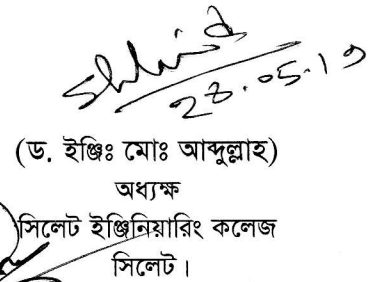 28.05.19
(ড. ইঞ্জিঃ মোঃ আব্দুল্লাহ)
অধ্যক্ষ
সিলেট ইঞ্জিনিয়ারিং কলেজ
সিলেট।